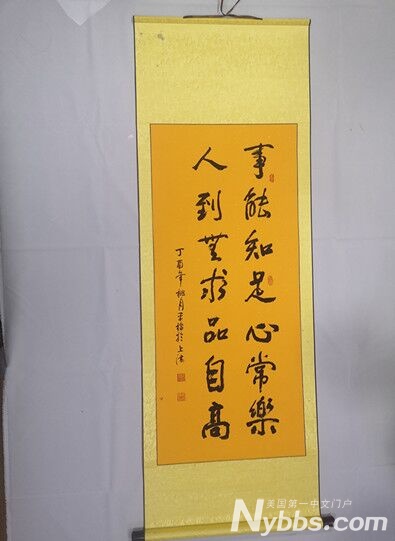 事能知足心常樂
人到無求品自高
丁酉年桃月
於上海
美国第一中文门户
Nybbs.com